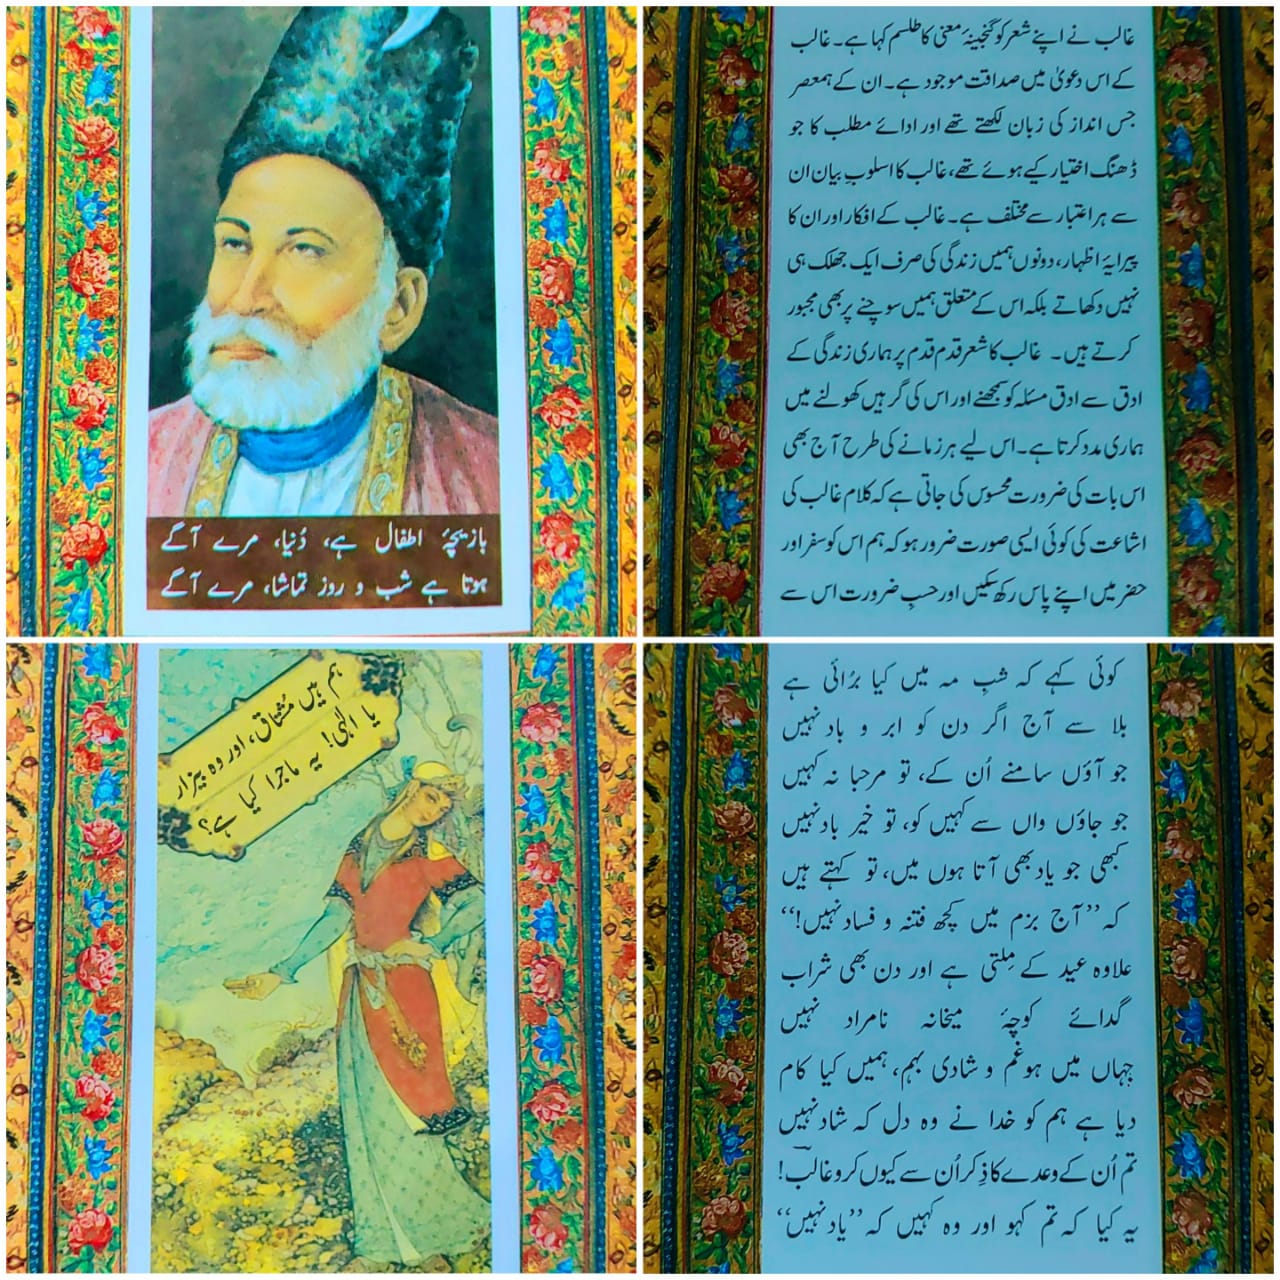 بازیچۂ اطفال ہے، دُنیا، مرے آگے
ہوتا ہے شب و روز تماشا، مرے آگے
غالب نے اپنے شعر کو گنجینۂ معنی کا طلسم کہا ہے۔ غالب
کے اس دعویٰ میں صداقت موجود ہے۔ ان کے ہمعصر
جس انداز کی زبان لکھتے تھے اور ادائے مطلب کا جو
ڈھنگ اختیار کیے ہوئے تھے، غالب کا اسلوبِ بیان ان
سے ہر اعتبار سے مختلف ہے۔ غالب کے افکار اور ان کا
پیرایۂ اظہار، دونوں ہمیں زندگی کی صرف ایک جھلک ہی
نہیں دکھاتے بلکہ اس کے متعلق ہمیں سوچنے پر بھی مجبور
کرتے ہیں۔ غالب کا شعر قدم قدم پر ہماری زندگی کے
ادق سے ادق مسئلہ کو سمجھنے اور اس کی گرہیں کھولنے میں
ہماری مدد کرتا ہے۔ اس لیے ہر زمانے کی طرح آج بھی
اس بات کی ضرورت محسوس کی جاتی ہے کہ کلام غالب کی
اشاعت کی کوئی ایسی صورت ضرور ہو کہ ہم اس کو سفر اور
حضر میں اپنے پاس رکھ سکیں اور حسبِ ضرورت اس سے
ہم ہیں مُشتاق، اور وہ بیزار
یا الٰہی! یہ ماجرا کیا ہے؟
کوئی کہے کہ شبِ مہ میں کیا بُرائی ہے
بلا سے آج اگر دن کو ابر و باد نہیں
جو آؤں سامنے اُن کے، تو مرحبا نہ کہیں
جو جاؤں واں سے کہیں کو، تو خیر باد نہیں
کبھی جو یاد بھی آتا ہوں میں، تو کہتے ہیں
کہ ”آج بزم میں کچھ فتنہ و فساد نہیں!“
علاوہ عید کے مِلتی ہے اور دن بھی شراب
گدائے کوچۂ میخانہ نامراد نہیں
جہاں میں ہو غم و شادی بہم، ہمیں کیا کام
دیا ہے ہم کو خدا نے وہ دل کہ شاد نہیں
تم اُن کے وعدے کا ذِکر اُن سے کیوں کرو غالب!
یہ کیا کہ تم کہو اور وہ کہیں کہ ”یاد نہیں“